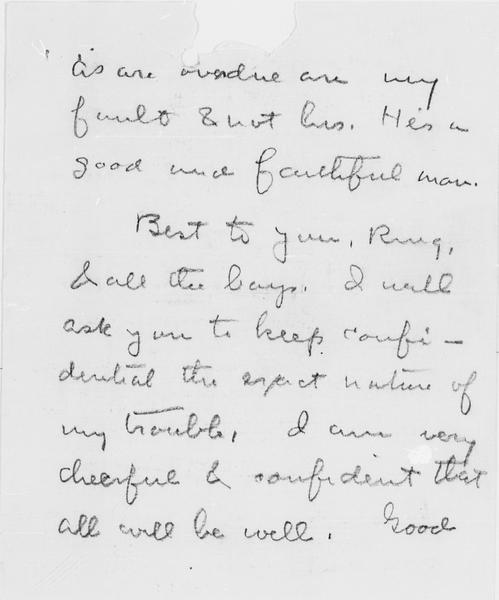 as are overdue are my
fault & not his. He's a
good and faithful man.
Best to you, Ring,
& all the boys. I will
ask you to keep confi-
dential the exact nature of
my trouble. I am very
cheerful & confident that
all will be well. Good